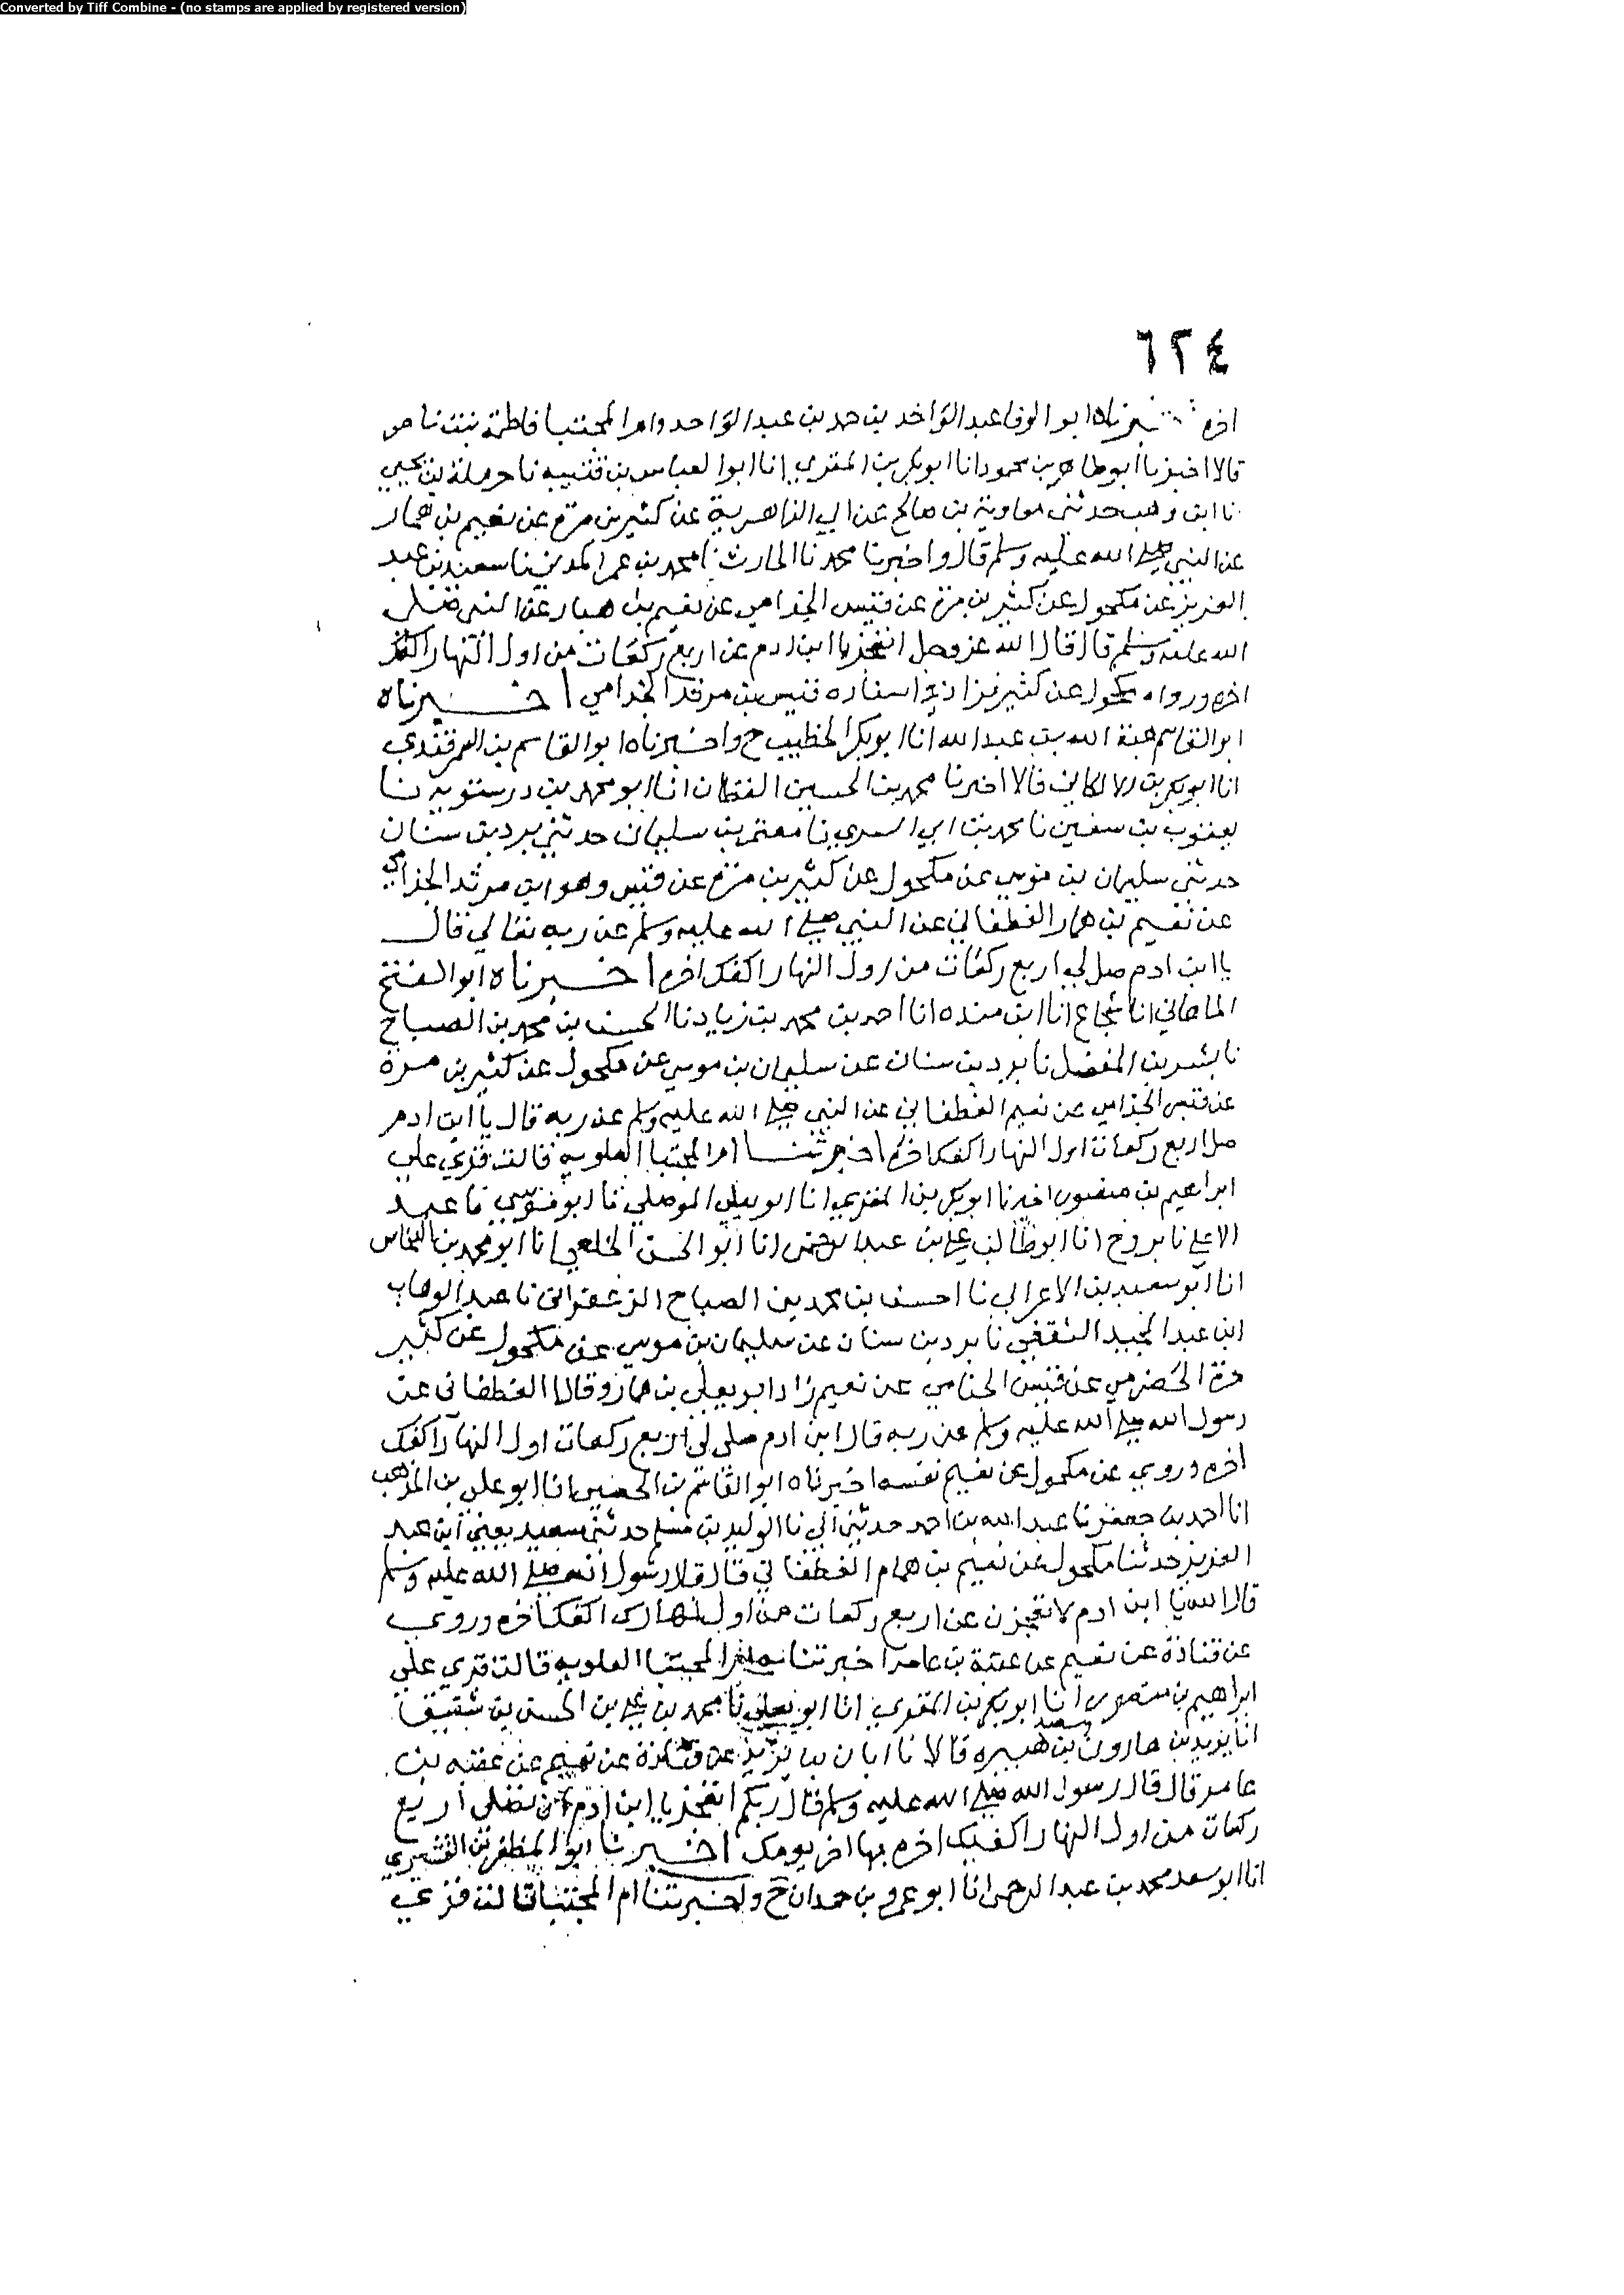 Converted by Tiff Combine - (no stamps are applied by registered version)
٦٢٤
اخره اخبرناه ابو الوفا عبد الواحد بن حمد بن عبد الواحد وام المجتبا فاطمة بنت ناصر
قالا اخبرنا ابو طاهر بن محمود انا ابو بكر بن المقري انا ابو العباس بن قتيبه نا حرملة بن يحيي
نا ابن وهب حدثني معاوية بن صالح عن ابي الزاهرية عن كثير بن مرة عن نعيم بن همار
عن النبي صلى الله عليه وسلم قال واخبرنا محمد نا الحارث نا محمد بن عمر المديني نا سعيد بن عبد
العزيز عن مكحول عن كثير بن مرة عن قيس الجذامي عن نعيم بن همار عن النبي صلى
الله عليه وسلم قال قال الله عز وجل اتعجز يا ابن ادم عن اربع ركعات من اول النهار اكفك
اخره ورواه مكحول عن كثير فزاد في اسناده قيس بن مرثد الجذامي اخبرناه
ابو القاسم هبة الله بن عبد الله انا ابو بكر الخطيب ح واخبرناه ابو القاسم بن السمرقندي
انا ابو بكر بن اللالكاني قالا اخبرنا محمد بن الحسين القطان انا ابو محمد بن درستويه نا
يعقوب بن سفين نا محمد بن ابي السري نا معتمر بن سليمان حدثني برد بن سنان
حدثني سليمان بن موسي عن مكحول عن كثير بن مرة عن قيس وهو ابن مرثد الجذامي
عن نعيم بن همار الغطفاني عن النبي صلى الله عليه وسلم عن ربه تعالي قال
يا ابن ادم صل لي اربع ركعات من اول النهار اكفك اخره اخبرناه ابو الفتح
الماهاني انا شجاع انا ابن منده انا احمد بن محمد بن زياد نا الحسن بن محمد بن الصباح
نا بشر بن المفضل نا برد بن سنان عن سليمان بن موسي عن مكحول عن كثير بن مرة
عن قيس الجذامي عن نعيم الغطفاني عن النبي صلى الله عليه وسلم عن ربه قال يا ابن ادم
صل اربع ركعات اول النهار اكفك اخره اخبرتنا ام المجتبا العلوية قالت قري علي
ابراهيم بن منصور اخبرنا ابو بكر بن المقري انا ابو يعلي الموصلي نا ابو موسي نا عبد
الاعلى نا برد ح انا ابو طالب علي بن عبد الرحمن انا ابو الحسن الخلعي انا ابو محمد بن النحاس
انا ابو سعيد بن الاعرابي نا الحسن بن محمد بن الصباح الزعفراني نا عبد الوهاب
ابن عبد المجيد الثقفي نا برد بن سنان عن سليمان بن موسي عن مكحول عن كثير
مرة الحضرمي عن قيس الجذامي عن نعيم زاد ابو يعلي بن همار وقالا الغطفاني عن
رسول الله صلى الله عليه وسلم عن ربه قال ابن ادم صلي لي اربع ركعات اول النهار اكفك
اخره وروي عن مكحول عن نعيم نفسه اخبرناه ابو القاسم بن الحصين انا ابو علي بن المذهب
انا احمد بن جعفر نا عبد الله بن احمد حدثني ابي نا الوليد بن مسلم حدثني سعيد يعني ابن عبد
العزيز حدثنا مكحول عن نعيم بن همام الغطفاني قال قال رسول الله صلى الله عليه وسلم
قال الله يا ابن ادم لا تعجزن عن اربع ركعات من اول نهارك اكفك اخره وروي
عن قتادة عن نعيم عن عقبة بن عامر اخبرتنا ام المجتبا العلوية قالت قري علي
ابراهيم بن منصور انا ابو بكر بن المقري انا ابو يعلي نا محمد بن علي بن الحسن بن شقيق
انا يزيد بن هارون وسعيد بن هبيره قالا نا ابان بن يزيد عن قتادة عن نعيم عن عقبه بن
عامر قال قال رسول الله صلى الله عليه وسلم قال ربكم اتعجز يا ابن ادم ان تصلي اربع
ركعات من اول النهار اكفيك اخره بها اخر يومك اخبرنا ابو المظفر بن القشيري
انا ابو سعد محمد بن عبد الرحمن انا ابو عمرو بن حمدان ح واخبرتنا ام المجتبا قالت قري